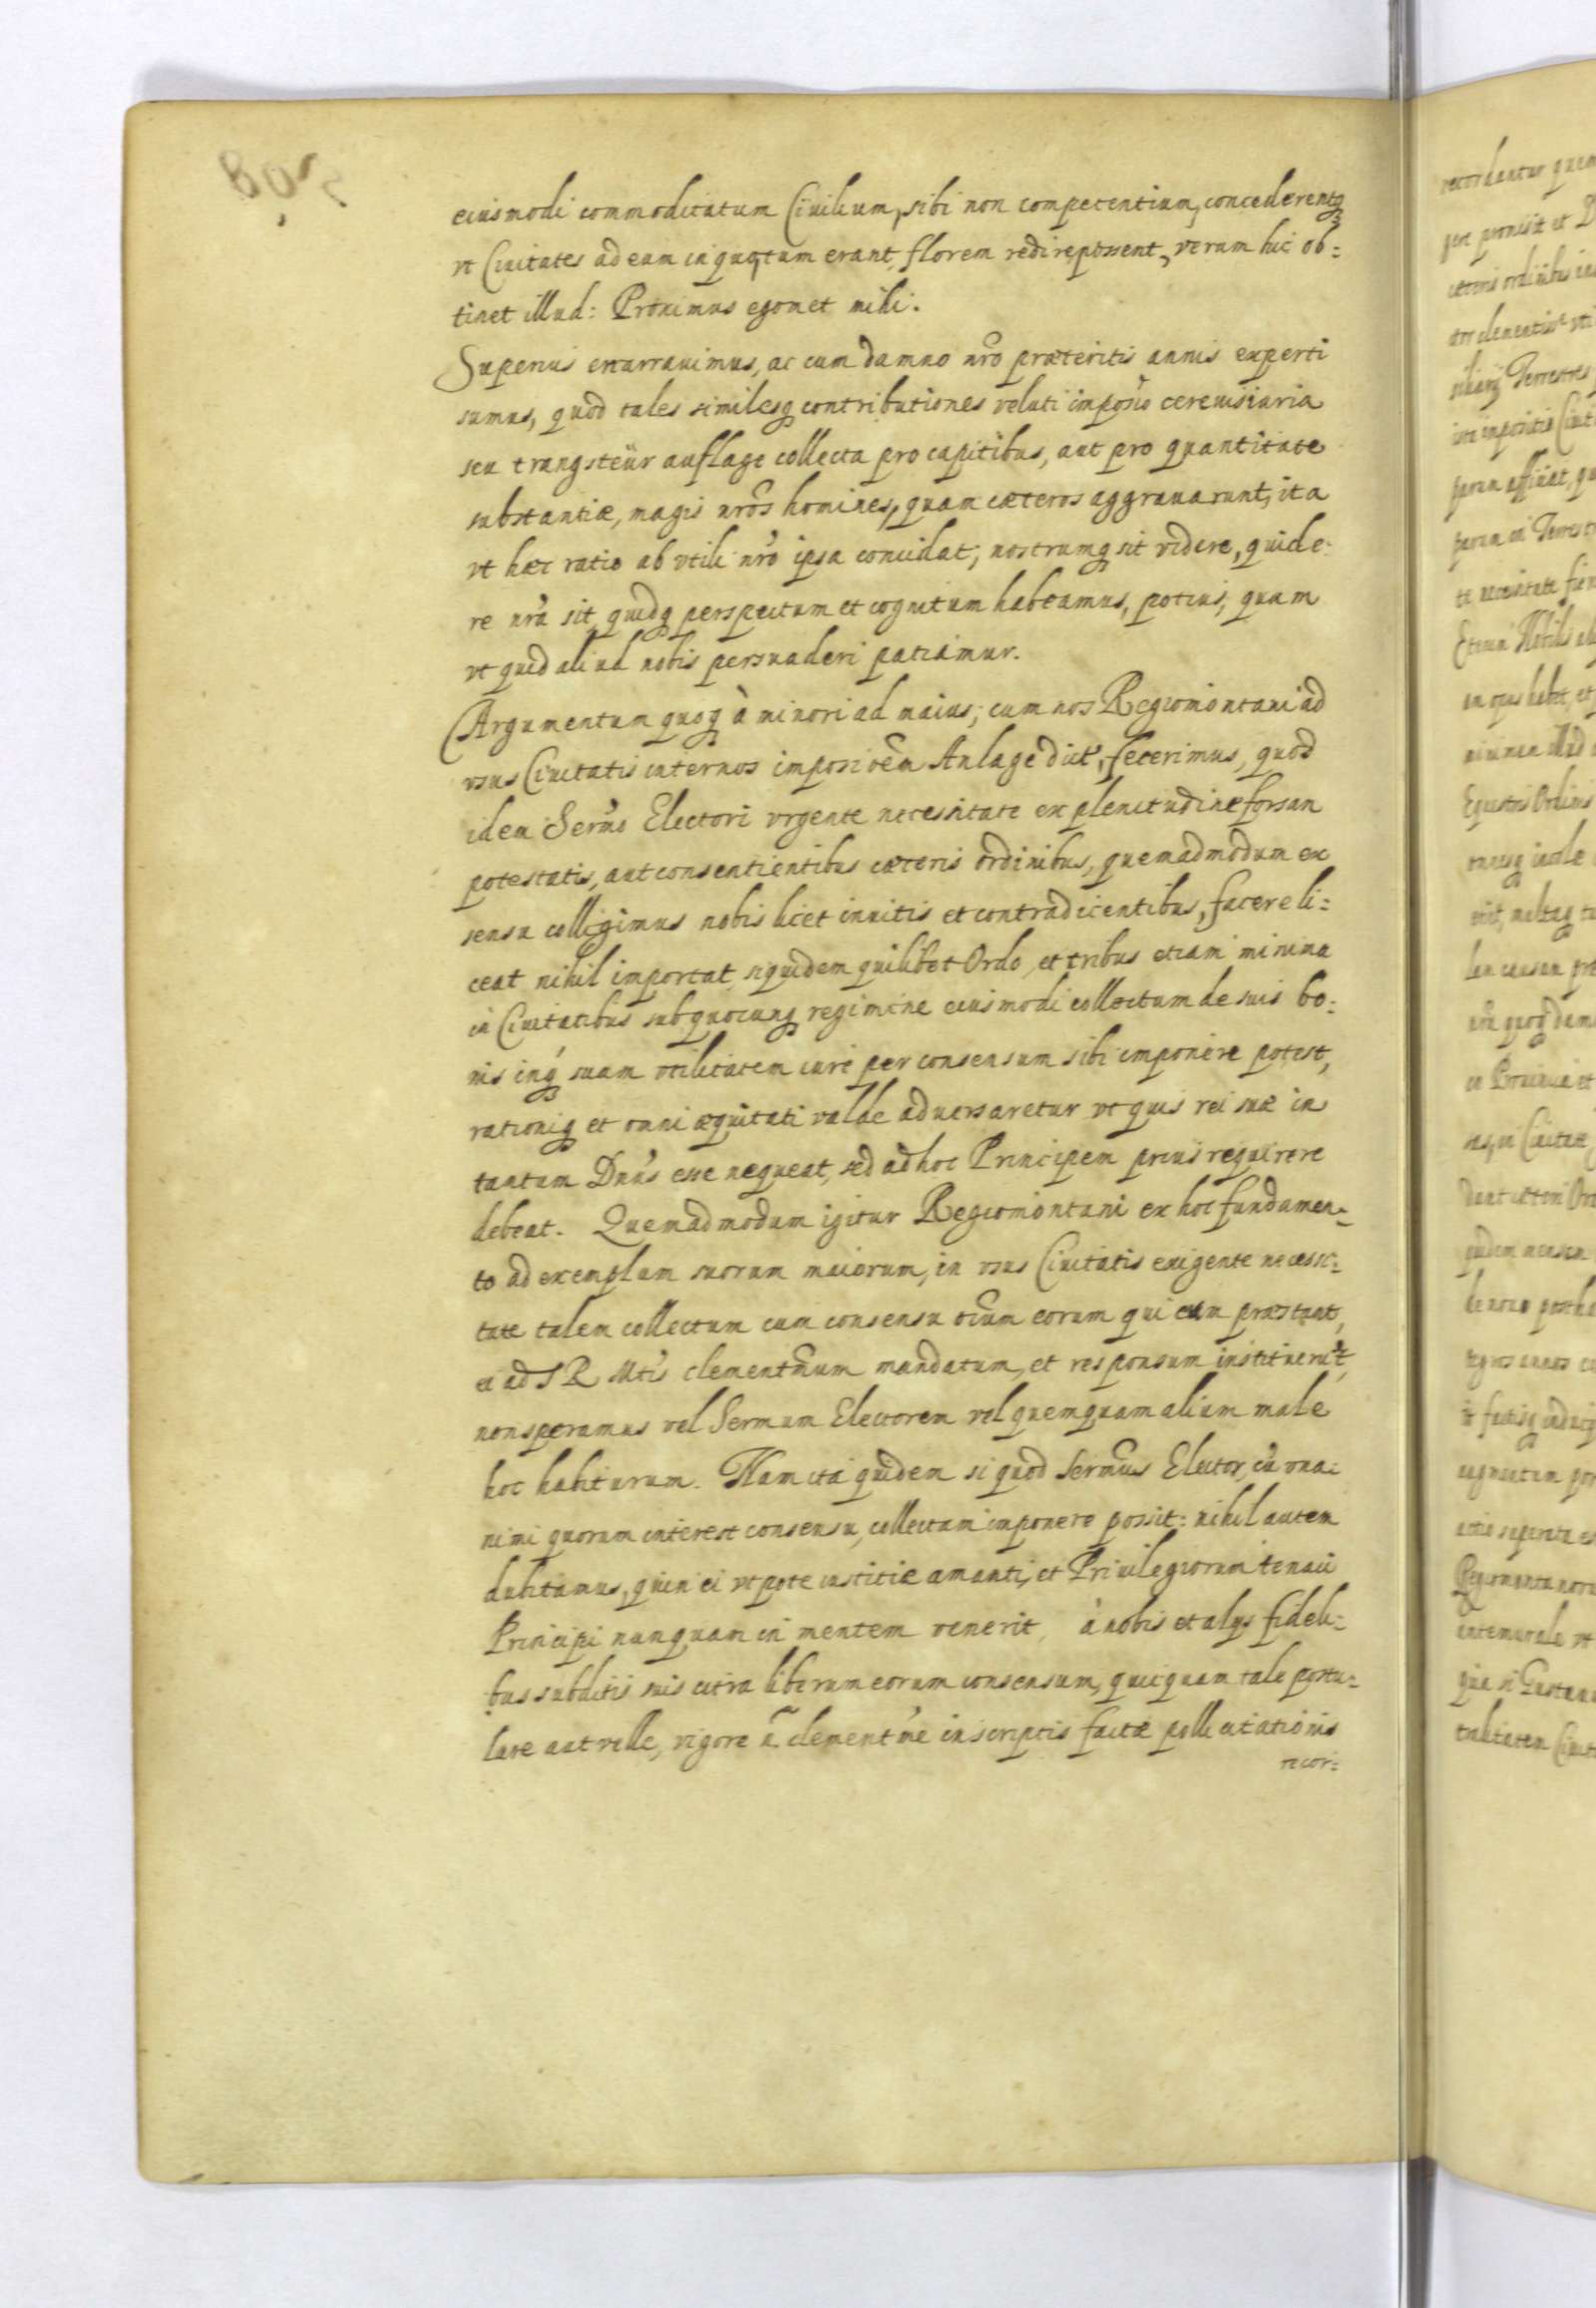 eiusmodi commoditatum Ciuilium, sibi non competentium, concederentq₃
vt Ciuitates ad eam in qua tum erant, florem redire possent, verum hic ob=
tinet illud: Proximus egomet mihi.
Superius enarrauimus, ac cum damno nr̃o præteritis annis experti
sumus, quod tales similesq₃ contributiones veluti impos̃io cereuisiaria
seu trangsteür aufflage collecta pro capitibus, aut pro quantitate
substantiæ, magis nr̃os homines, quam cæteros aggrauarunt, ita
vt hæc ratio ab vtili nr̃o ipsa concidat; nostrumq₃ sit videre, quid e
re nr̃a sit, quidq₃ perspectum et cognitum habeamus, potius, quam
vt quid aliud nobis persuaderi patiamur.
Argumentum quoq₃ à minori ad maius; cum nos Regiomontani ad
vsus Ciuitatis internos imposic̃oem Anlage dict, fecerimus, quod
idem Serm̃o Electori vrgente necessitate ex plenitudine forsan
potestatis, aut consentientibus cæteris ordinibus, quemadmodum ex
sensu colligimus nobis licet inuitis et contradicentibus, facere li=
ceat nihil importat, siquidem quilibet Ordo, et tribus etiam minima
in Ciuitatibus sub quocunq₃ regimine eiusmodi collectam de suis bo=
nis inq₃ suam vtilitatem iure per consensum sibi imponere potest,
rationiq₃ et omni æquitati valde aduersaretur vt quis rei suæ in
tantum Dn̄s esse nequeat, sed ad hoc Principem prius requirere
debeat. Quemadmodum igitur Regiomontani ex hoc fundamen=
to ad exemplum suorum maiorum, in vsus Ciuitatis exigente necessi=
tate talem collectam cum consensu oĩum eorum qui eam præstant,
et ad S R Mtis clementm̃um mandatum, et responsum instituerũt,
non speramus vel Sermum Electorem vel quemquam alium male
hoc habiturum. Nam ita quidem si quod Serm̃us Elector, cũ vna=
nimi quorum interest consensu, collectam imponere possit: nihil autem
dubitamus, quin ei vt pote iustitiæ amanti, et Priuilegiorum tenaci
Principi nunquam in mentem venerit, à nobis et alijs fideli=
bus subditis suis citra liberum eorum consensum, quicquam tale postu=
lare aut velle, vigore ñ clementm̃e in scriptis factæ pollicitationis
recor=